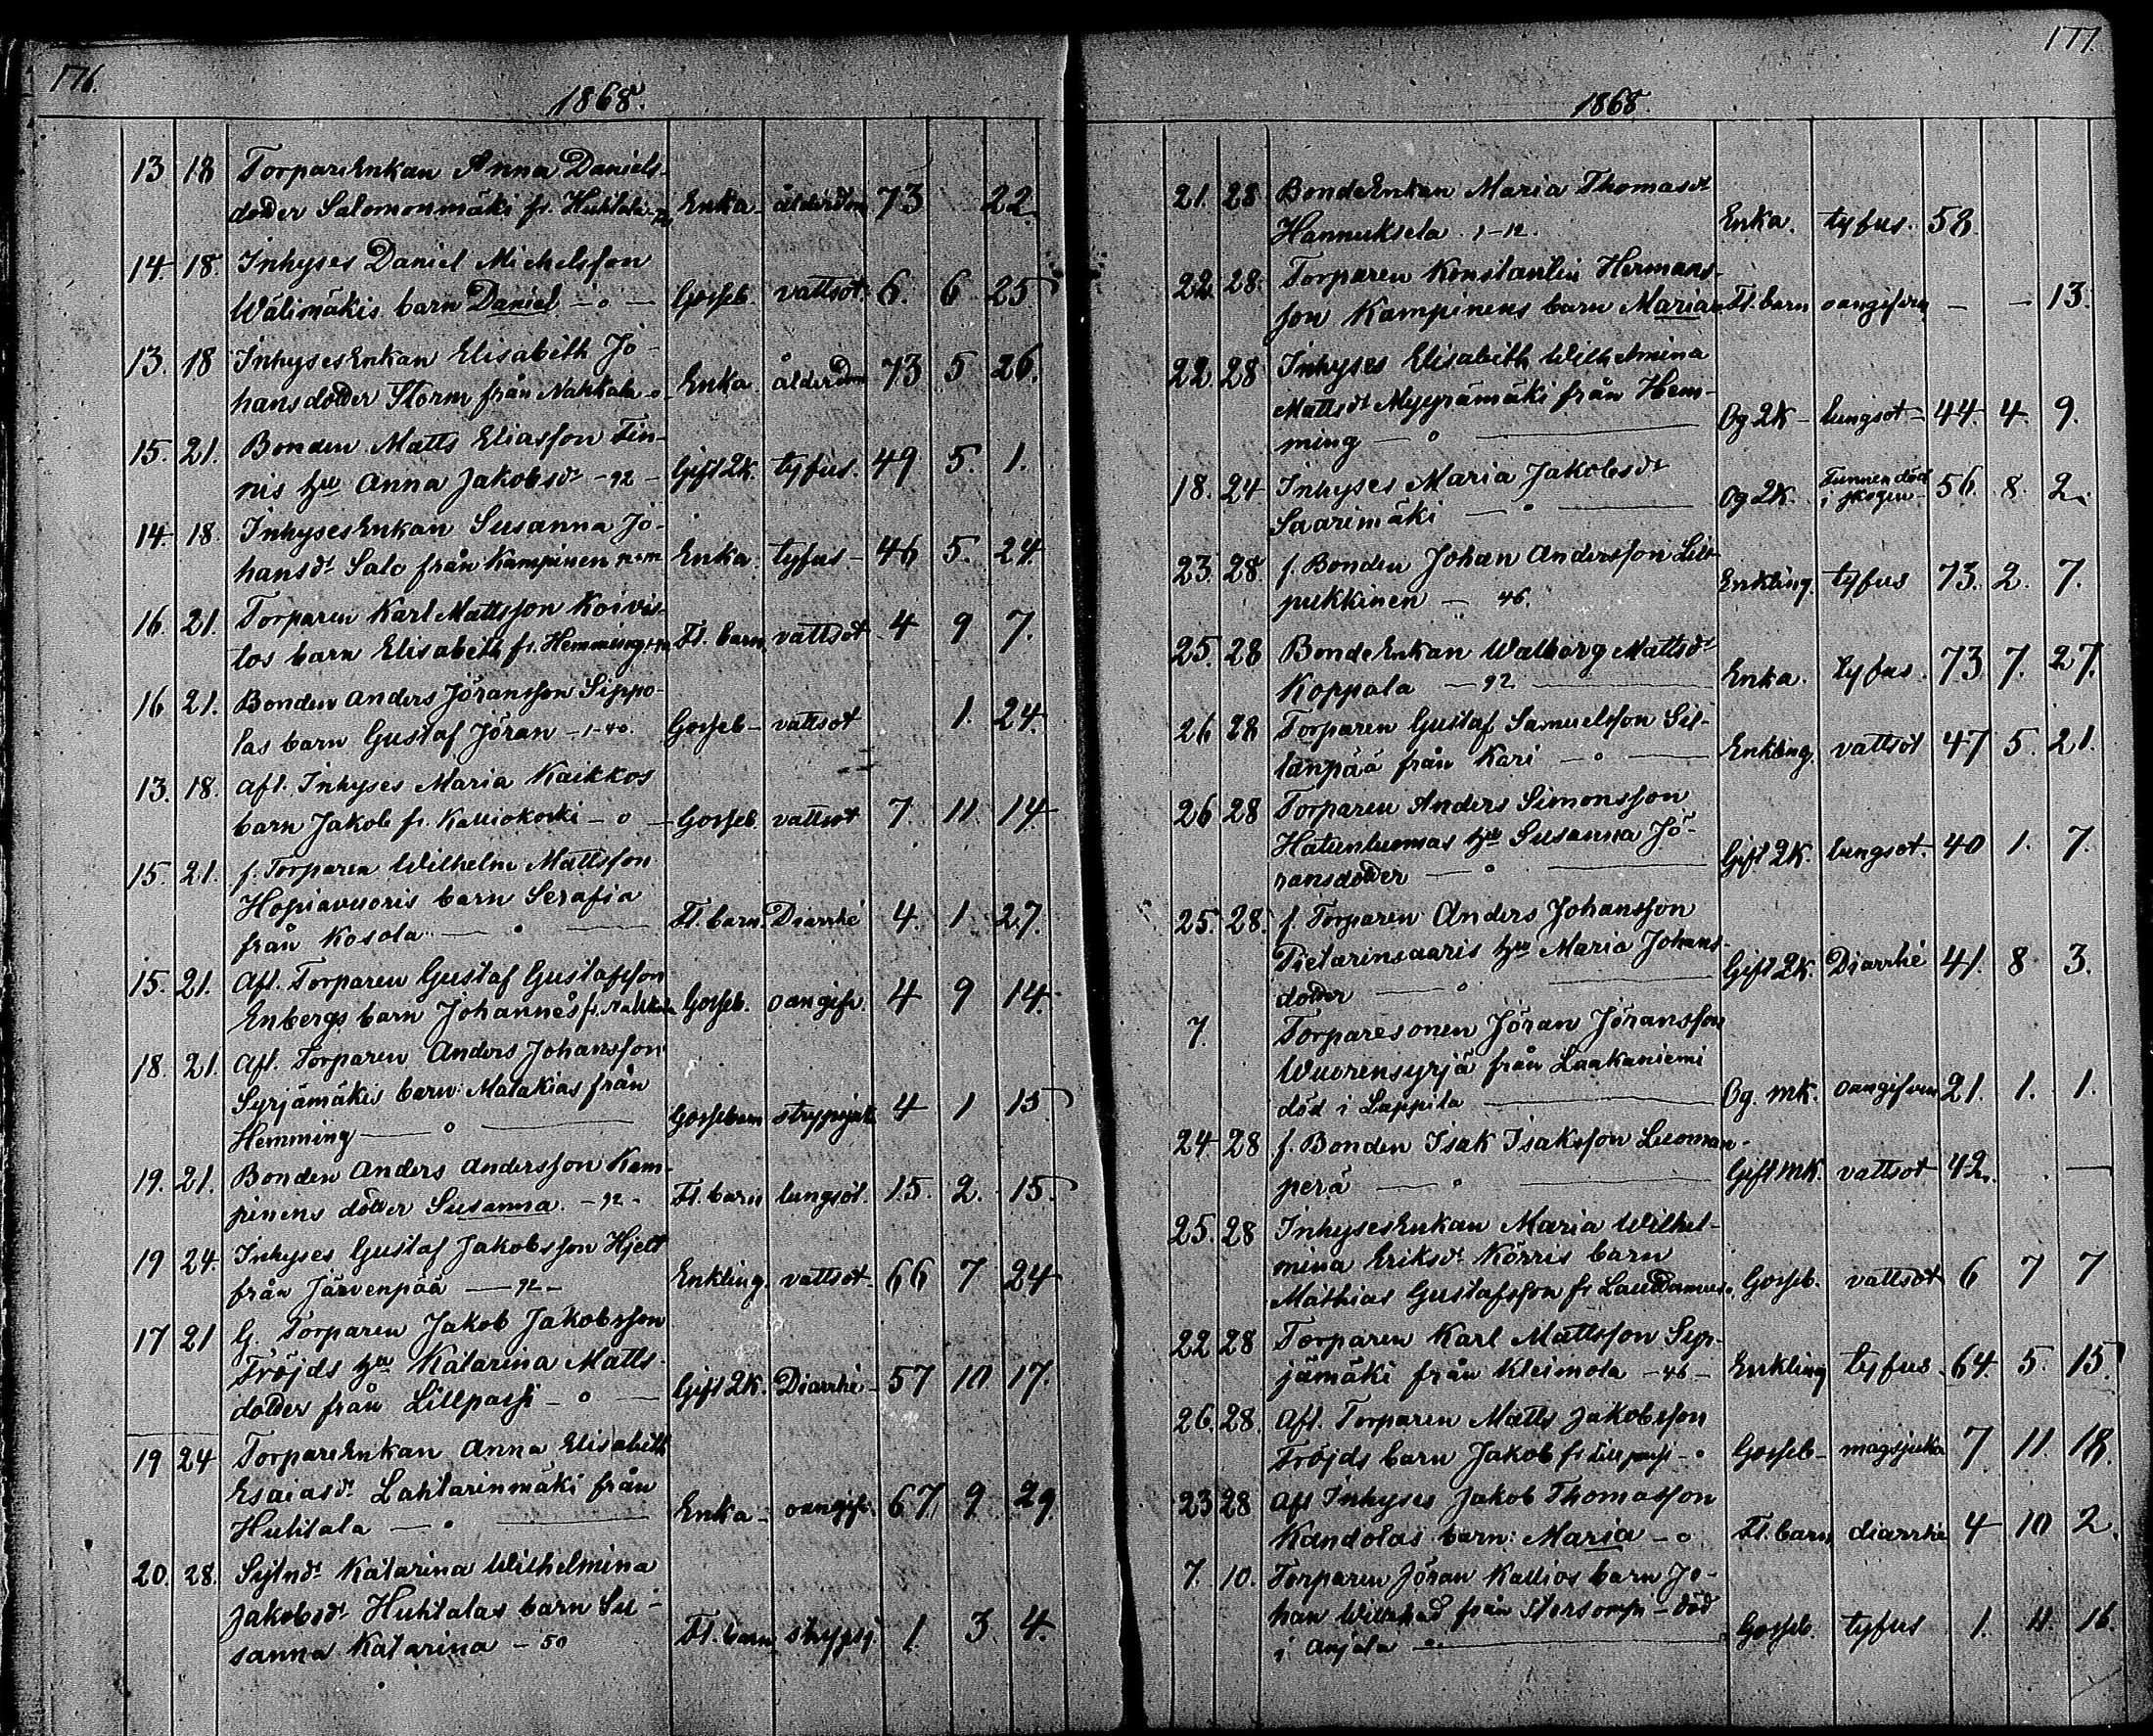 176.
1868.
13 18 Torpareenkan Anna Daniels-
dotter Salomonmäki fr. Huhtala Enka - ålderdom 73 22.
14. 18. Inhyses Daniel Michelsson
Wälimäkis barn Daniel - o - Gosseb. vattsot. 6. 6 25
13. 18 Inhysesenkan Elisabeth Jo-
hansdotter Storm från Nahkala - o - Enka ålderdom 73 5 26.
15. 21. Bonden Matts Eliasson Fin-
nis hu Anna Jakobsdr - 92 - Gift 2k. tyfus. 49 5. 1.
14. 18. Inhysesenkan Susanna Jo-
hansdr Salo från Kampinen Enka. tyfus - 46 5. 24.
16. 21. Torparen Karl Mattsson Koivis-
tos barn Elisabeth fr. Hemming Fl. barn vattsot 4 9 7.
16 21. Bonden Anders Jöransson Sippo-
las barn Gustaf Jöran - 1-40. Gosseb - vattsot 1. 24.
13. 18. Afl. Inhyses Maria Kaikkos
barn Jakob fr. Kalliokoski - o - Gosseb. vattsot 7. 11. 14.
15. 21. f. Torparen Wilhelm Mattsson
Hopiavuoris barn Serafia
från Kosola - o - Fl. barn. Diarrhé 4. 1 27.
15. 21. Afl. Torparen Gustaf Gustafsson
Enbergs barn Johannes fr. Gosseb. oangifv. 4 9 14.
18. 21. Afl. Torparen Anders Johansson
Syrjämäkis barn: Malakias från
Hemming - o - Gossebarn strypsjuk 4 1 15
19. 21. Bonden Anders Andersson Kam-
pinens dotter Susanna. - 92 - Fl. barn lungsot. 15. 2. 15.
19 24. Inhyses Gustaf Jakobsson Hjelt
från Järvenpää - 92 - Enkling. vattsot - 66 7 24
17 21 G. Torparen Jakob Jakobsson
Fröjds hu Katarina Matts-
dotter från Lillpassi - o - Gift 2k. Diarrhé - 57 10 17.
19 24 Torpareenkan Anna Elisabeth
Esaiasdr Lahtarinmäki från
Huhtala - o - Enka - oangifv. 67. 9 29.
20. 28. Sytndr Katarina Wilhelmina
Jakobsdr Huhtalas barn Su-
sanna Katarina - 50 Fl. barn strypsj. 1. 3 4.
177.
1868.
21. 28 Bondeenkan Maria Thomasdr
Hannuksela. 1-12. Enka. tyfus. 58.
22. 28. Torparen Konstantin Hermans-
son Kampinens barn Maria Fl. barn oangifven - - 13.
22. 28 Inhyses Elisabeth Wilhelmina
Mattsdr Myyrämäki från Hem-
ming - o - Og 2k - lungsot - 44. 4. 9.
18. 24 Inhyses Maria Jakobsdr
Saarimäki - o - Og 2k. Funnen död i skogen - 56. 8. 2.
23. 28. f. Bonden Johan Andersson Lill-
pukkinen - 46. Enkling. tyfus 73. 2. 7.
25. 28 Bondeenkan Walborg Mattsdr
Koppala - 92 - Enka. tyfus. 73 7. 27.
26 28 Torparen Gustaf Samuelsson Sil-
lanpää från Kari - o - Enkling. vattsot 47 5. 21.
26 28 Torparen Anders Simonsson
Hatunluomas hu Susanna Jö-
ransdotter - o - Gift 2k. lungsot. 40 1. 7.
25. 28. f. Torparen Anders Johansson
Pietarinsaaris hu Maria Johans-
dotter - o - Gift 2k. Diarrhé 41. 8 3.
7. Torparesonen Jöran Jöransson
Wuorensyrjä från Laakaniemi
död i Lappila - Og. mk. oangifven 21. 1. 1.
24 28 f. Bonden Isak Isaksson Luoman-
perä - o - Gift mk. vattsot 42. -
25. 28 Inhysesenkan Maria Wilhel-
mina Eriksdr Körris barn
Mathias Gustafsson fr Gosseb. vattsot 6 7 7
22 28 Torparen Karl Mattsson Syr-
jämäki från Kleimola - 46 - Enkling tyfus. 64. 5. 15.
26. 28. Afl. Torparen Matts Jakobsson
Fröjds barn Jakob fr Lillpassi - o Gosseb - magsjuka 7 11. 18.
23 28 Afl Inhyses Jakob Thomasson
Kandolas barn: Maria - o Fl. barn diarrhé 4 10 2.
7. 10. Torparen Jöran Kallios barn Jo-
han Willehad från - död
i Anjala - o - Gosseb. tyfus 1. 11. 16.